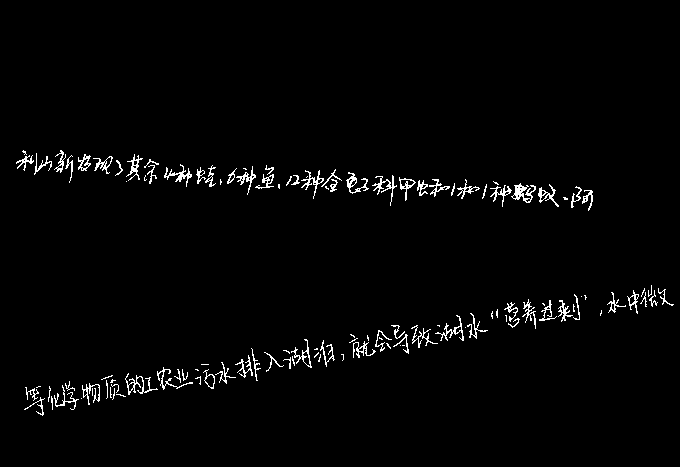 利山新发现了其余4种蛙、6种鱼、12种金龟子科甲虫和1和1种蚂蚁。阿
等化学物质的工农业污水排入湖泊，就会导致湖水“营养过剩”，水中微